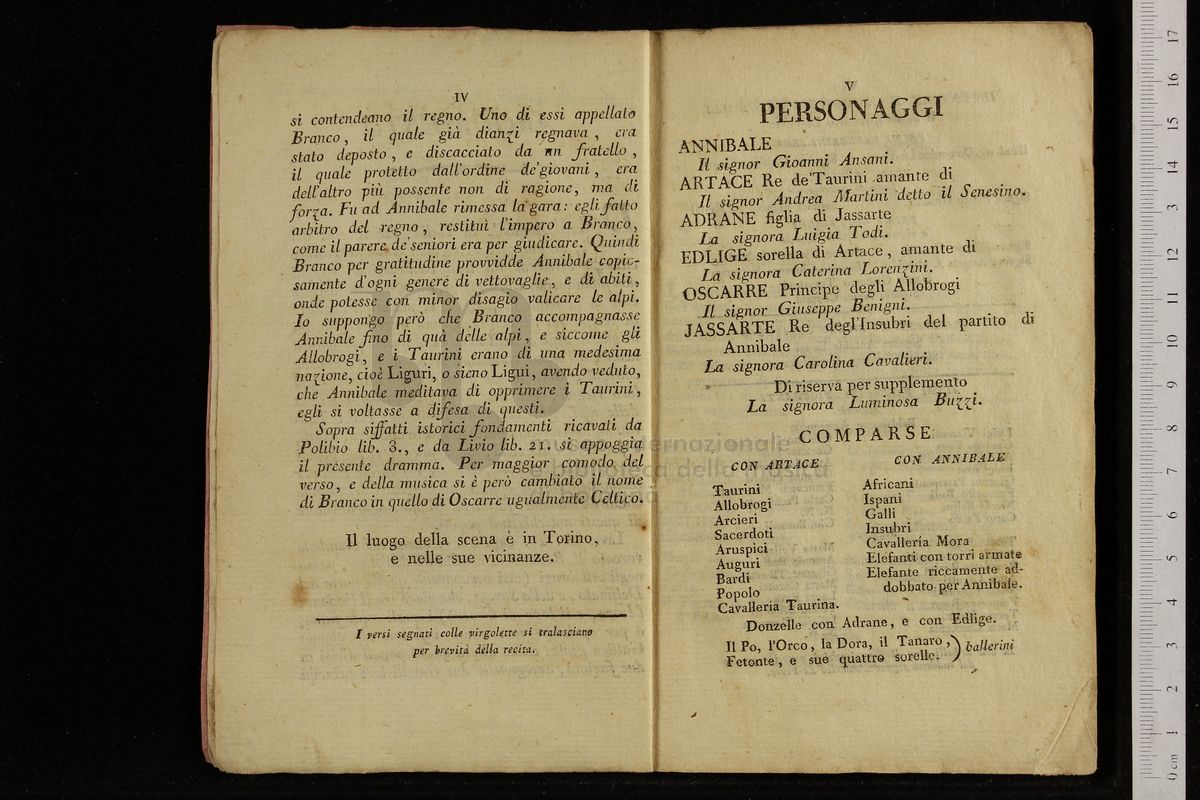 IV
si contendeano il regno. Uno di essi appellato
Branco, il quale già dianzi regnava, era
stato deposto, e discacciato da nn fratello,
il quale protetto dall'ordine de'giovani, era
dell'altro più possente non di ragione, ma di
forza. Fu ad Annibale rimessa la gara: egli fatto
arbitro del regno, restituì l'impero a Branco,
come il parere de'seniori era per giudicare. Quindi
Branco per gratitudine provvidde Annibale copio-
samente d'ogni genere di vettovaglie, e di abiti,
onde potesse con minor disagio valicare le alpi.
Io suppongo però che Branco accompagnasse
Annibale fino di quà delle alpi, e siccome gli
Allobrogi, e i Taurini erano di una medesima
nazione, cioè Liguri, o sieno Ligui, avendo veduto,
che Annibale meditava di opprimere i Taurini,
egli si voltasse a difesa di questi.
Sopra siffatti istorici fondamenti ricavati da
Polibio lib. 3., e da Livio lib. 21. si appoggia
il presente dramma. Per maggior comodo del
verso, e della musica si è però cambiato il nome
di Branco in quello di Oscarre ugualmente Celtico.
Il luogo della scena è in Torino,
e nelle sue vicinanze.
I versi segnati colle virgolette si tralasciano
per brevità della recita.
V
PERSONAGGI
ANNIBALE
Il signor Gioanni Ansani.
ARTACE Re de'Taurini amante di
Il signor Andrea Martini detto il Senesino.
ADRANE figlia di Jassarte
La signora Luigia Todi.
EDLIGE sorella di Artace, amante di
La signora Caterina Lorenzini.
OSCARRE Principe degli Allobrogi
Il signor Giuseppe Benigni.
JASSARTE Re degl'Insubri del partito di
Annibale
La signora Carolina Cavalieri.
Di riserva per supplemento
La signora Luminosa Buzzi.
COMPARSE
CON ARTACE
Taurini
Allobrogi
Arcieri
Sacerdoti
Aruspici
Auguri
Bardi
Popolo
Cavalleria Taurina.
CON ANNIBALE
Africani
Ispani
Galli
Insubri
Cavallería Mora
Elefanti con torri armate
Elefante riccamente ad-
dobbato per Annibale.
Donzelle con Adrane, e con Edlige.
Il Po, l'Orco, la Dora, il Tanaro, ) ballerini
Fetonte, e sue quattro sorelle.
museo internazionale
biblioteca della musica
0 cm 1 2 3 4 5 6 7 8 9 10 11 12 13 14 15 16 17